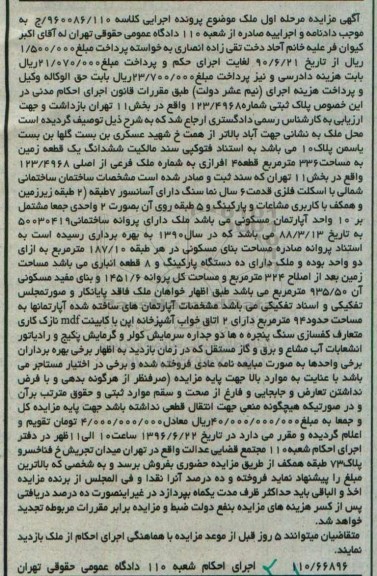 آگهی مزایده مرحله اول ملک موضوع پرونده اجرایی کلاسه ۹۶۰۰۸۶/۱۱۰ج
موجب دادنامه و اجراییه صادره از شعبه ۱۱۰ دادگاه عمومی حقوقی تهران له آقای اکبر
کیوان فر علیه خانم آحاد دخت تقی زاده انصاری به خواسته پرداخت مبلغ۱/۵۰۰/۰۰۰
ریال از تاریخ ۹۰/۶/۲۱ لغایت اجرای حکم و پرداخت مبلغ۲۱/۰۷۰/۰۰۰ریال
بابت هزینه دادرسی و نیز پرداخت مبلغ۲۳/۷۰۰/۰۰۰ریال بابت حق الوکاله وکیل
و پرداخت هزینه اجرای (نیم عشر دولت) طبق مقررات قانون اجرای احکام مدنی در
این خصوص پلاک ثبتی شماره۱۲۳/۴۹۶۸ واقع در بخش۱۱ تهران بازداشت و جهت
ارزیابی به کارشناس رسمی دادگستری ارجاع شد که به شرح ذیل توصیف گردیده است
محل ملک به نشانی جهت آباد بالاتر از همت خ شهید عسکری بن بست گلها بن بست
یاسمن پلاک۱۰ می باشد به استناد فتوکپی سند مالکیت ششدانگ یک قطعه زمین
به مساحت۳۳۶ مترمربع قطعه۴ افرازی به شماره ملک فرعی از اصلی ۱۲۳/۴۹۶۸
واقع در بخش۱۱ تهران که سند ثبت و صادر شده است مشخصات ساختمان ساختمانی
شمالی با اسکلت فلزی قدمت۶ سال نما سنگ دارای آسانسور ۷طبقه (۲ طبقه زیرزمین
و همکف با کاربری مشاعات و پارکینگ و ۵ طبقه روی آن بصورت ۲ واحدی جمعا مشتمل
بر ۱۰ واحد آپارتمان مسکونی می باشد ملک دارای پروانه ساختمانی۵۰۰۳۰۴۱۹
به تاریخ ۸۸/۳/۱۳ می باشد که در سال۱۳۹۰ به بهره برداری رسیده است به
استناد پروانه صادره مساحت بنای مسکونی در هر طبقه ۱۸۷/۱۰ مترمربع به ازای
دو واحد بوده و ملک دارای ده دستگاه پارکینگ و ۸ قطعه انباری می باشد مساحت
زمین بعد از اصلاح ۳۲۴ مترمربع و مساحت کل پروانه ۱۴۵۱/۶ و بنای مفید مسکونی
آن ۹۳۵/۵۰ مترمربع می باشد طبق اظهار خواهان ملک فاقد پایانکار و صورتمجلس
تفکیکی و اسناد تفکیکی می باشد مشخصات آپارتمان های ساخته شده آپارتمانها به
مساحت حدود۹۴ مترمربع دارای ۲ اتاق خواب آشپزخانه اپن با کابینت mdf نازک کاری
متعارف کفسازی سنگ پنجره ه ها دو جداره سرمایش کولر و گرمایش پکیج و رادیاتور
انشعابات آب مشاع و برق و گاز مستقل که در زمان بازدید به اظهار برخی بهره برداران
برخی واحدها به صورت مبایعه نامه عادی فروخته شده و برخی در اختیار مستاجر می
باشد با عنایت به موارد بالا جهت پایه مزایده (صرفنظر از هرگونه بدهی و با فرض
نداشتن تعارض و جابجایی و فارغ از صحت و سقم موارد ثبتی و حقوق مترتب برآن
و در صورتیکه هیچگونه منعی جهت انتقال قطعی نداشته باشد جهت پایه مزایده کل
و جمعا به مبلغ۴۰/۰۰۰/۰۰۰/۰۰۰ریال معادل۴/۰۰۰/۰۰۰/۰۰۰ تومان تقویم و
اعلام گردیده و مقرر می دارد در تاریخ ۱۳۹۶/۶/۲۲ ساعت۱۰ الی۱۱ظهر در دفتر
اجرای احکام شعبه۱۱۰ مجتمع قضایی عدالت واقع در تهران میدان تجریش خ فناخسرو
پلاک۷۳ طبقه همکف از طریق مزایده حضوری بفروش برسد و به شخصی که بالاترین
مبلغ را پیشنهاد نماید فروخته و ده درصد آنرا نقدا و فی المجلس از برنده مزایده
اخذ و الباقی باید حداکثر ظرف مدت یکماه بپردازد در غیراینصورت ده درصد دریافتی
پس از کسر هزینه های مزایده بنفع دولت ضبط و مزایده برابر مقررات مربوطه تجدید
خواهد شد.
متقاضیان میتوانند ۵ روز قبل از موعد مزایده با هماهنگی اجرای احکام از ملک بازدید
نمایند.
۱۱۰/۶۶۸۹۶ اجرای احکام شعبه ۱۱۰ دادگاه عمومی حقوقی تهران